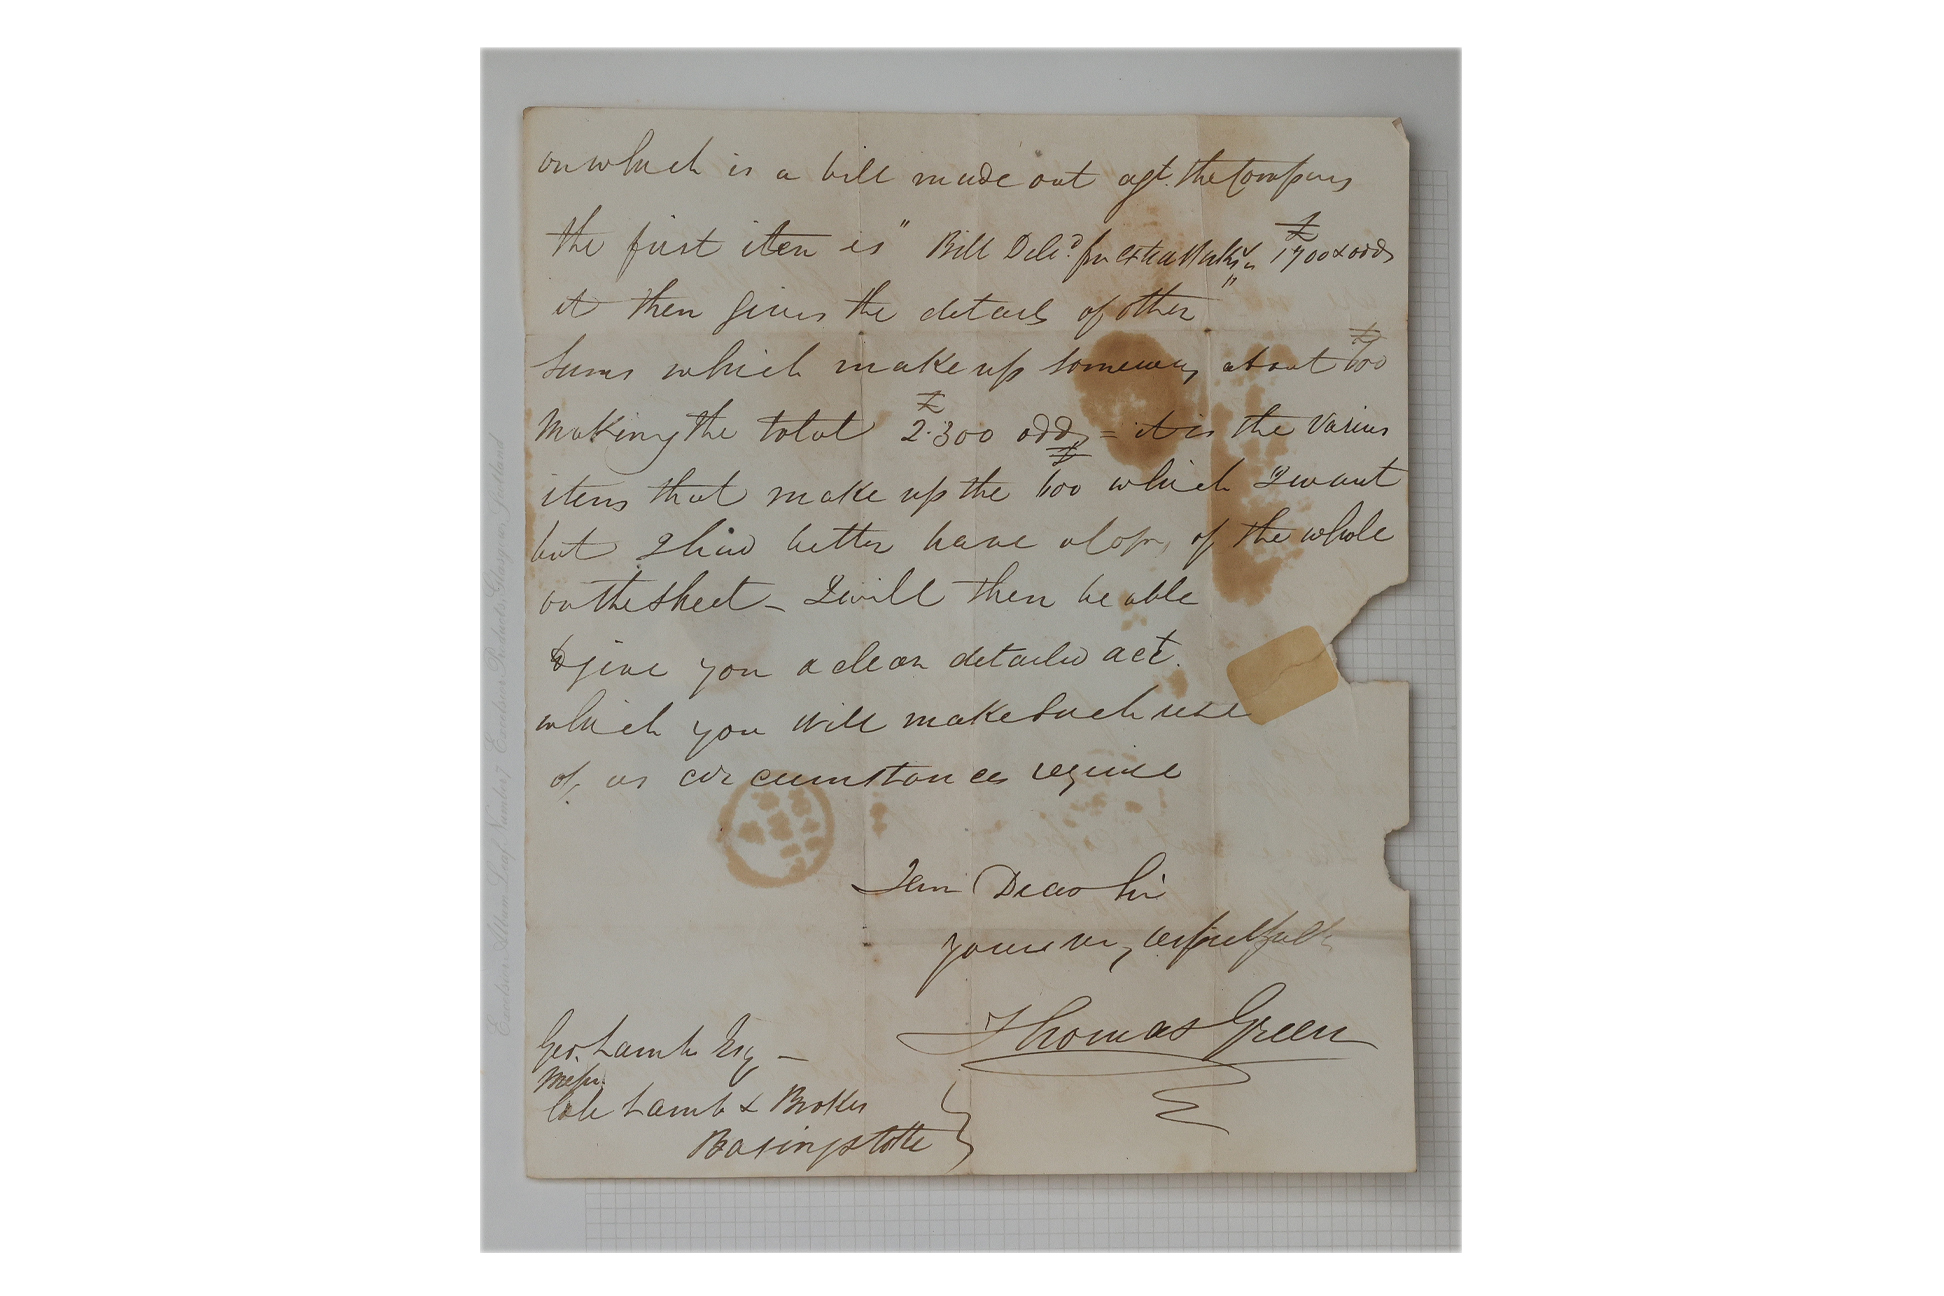 on which is a bill made out agt. the Company
the first item is " Bill Deld. for extra Works " £1700 & odd
it then gives the details of other
sums which make up someway about £600
making the total £2.300 odd = it is the various
items that make up the £600 which I want
but I had better have a Copy of the whole
on the sheet - I will then be able
to give you a clear detailed acct.
which you will make such use
of as circumstances require
I am Dear Sir
yours very respectfully
Thomas Green
Geo. Lamb Esq -
Messrs.
Cole Lamb & Brooks
Basingstoke
Excelsior Album Leaf, Number 7 Excelsior Products, Glasgow, Scotland